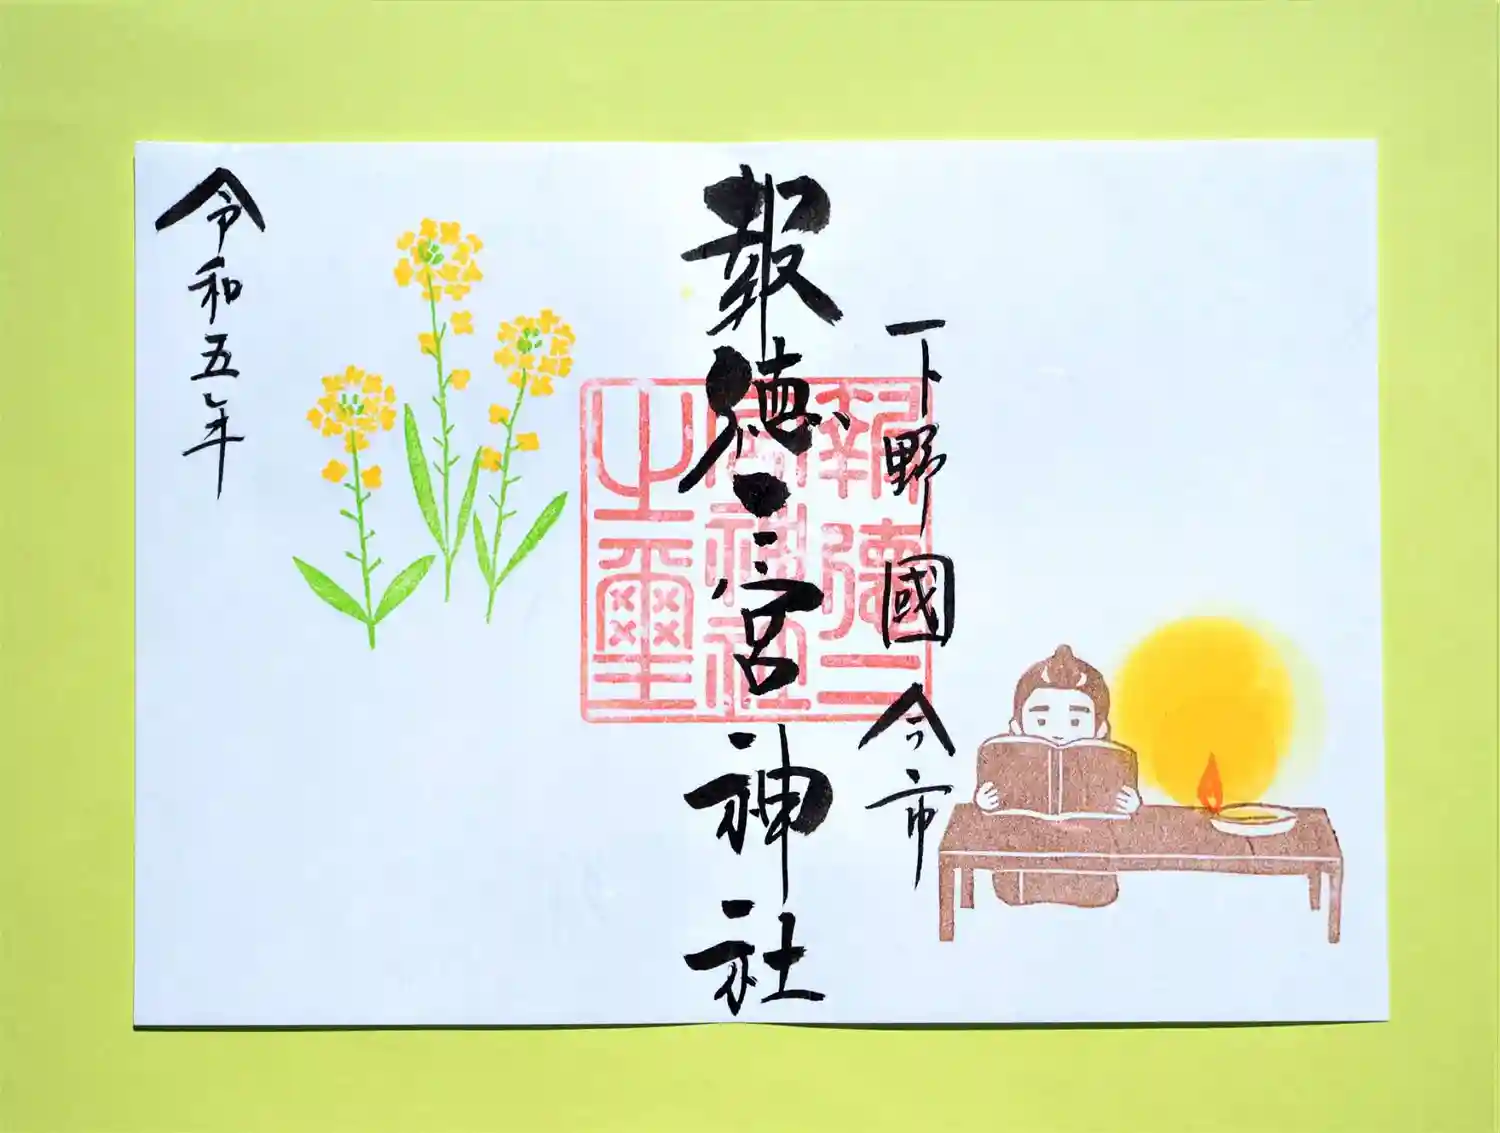 下野國 今市
報徳二宮神社
報徳二
宮神社
之璽
令和五年